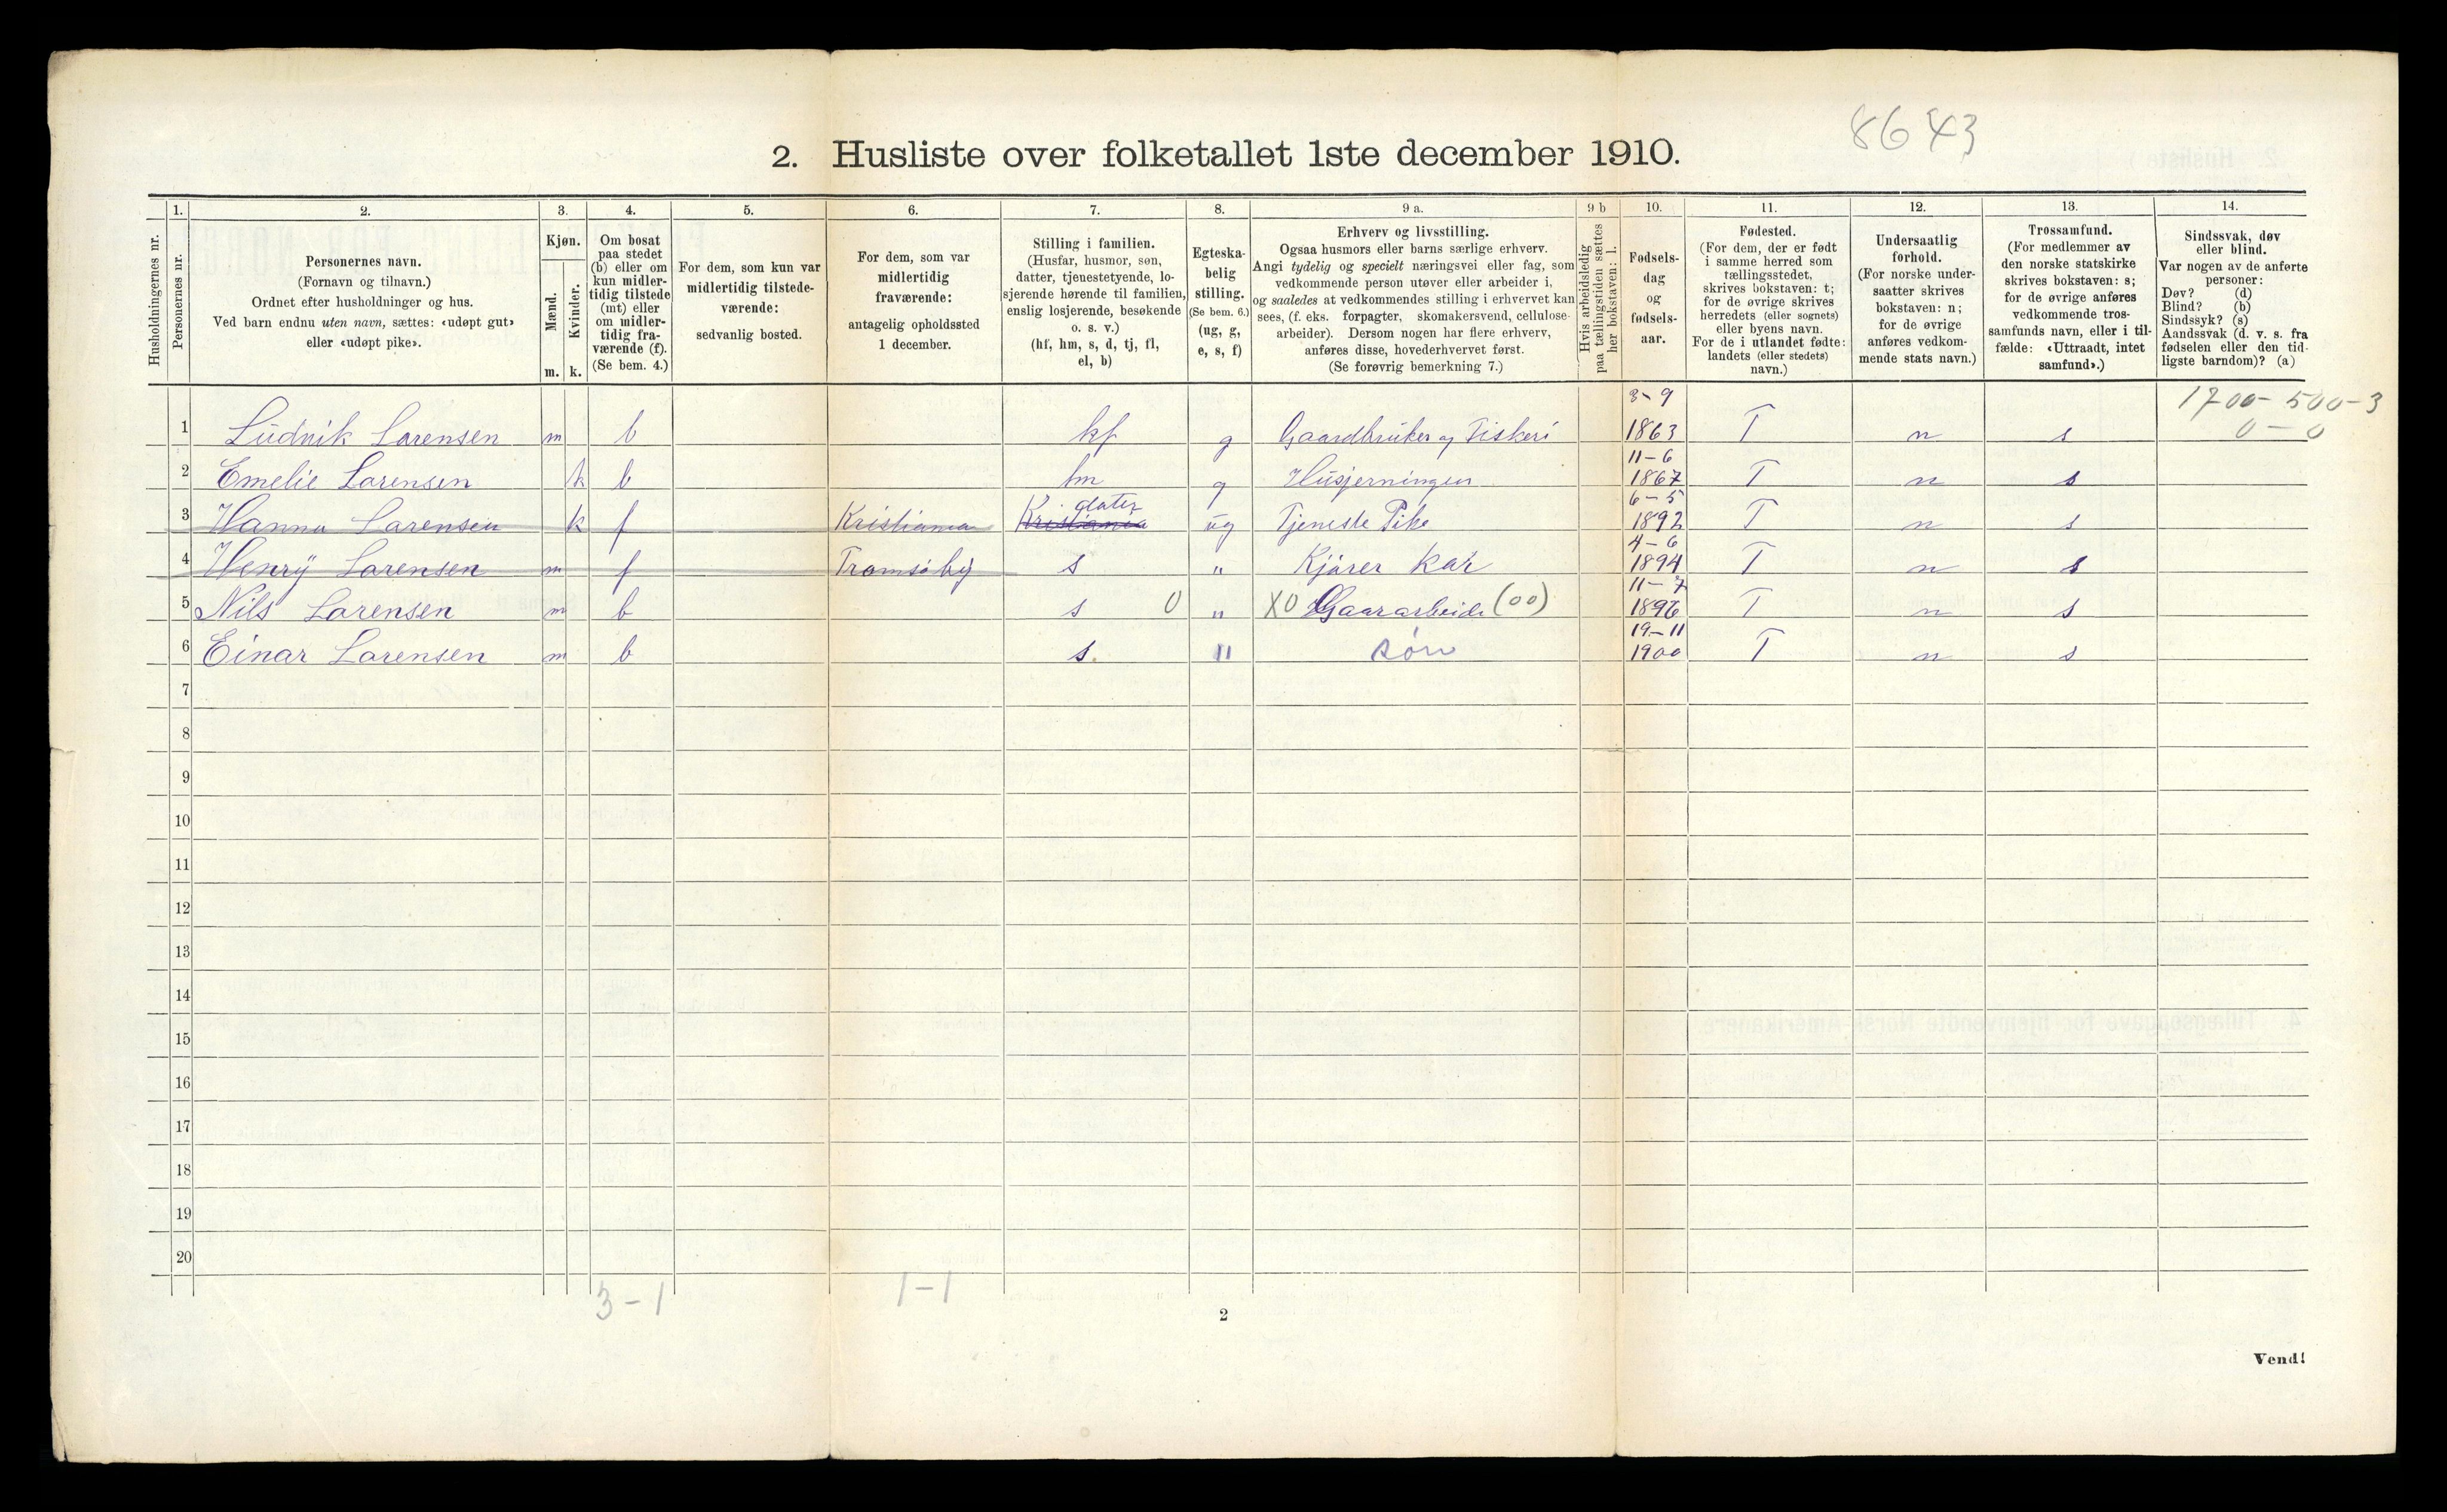 8643
2. Husliste over folketallet 1ste december 1910.
Husholdningernes nr.
1.
Personernes nr.
2.
Personernes navn.
(Fornavn og tilnavn.)
Ordnet efter husholdninger og hus.
Ved barn endnu uten navn, sættes: «udøpt gut»
eller «udøpt pike».
3.
Kjøn.
Mænd.
Kvinder.
m. k.
4.
Om bosat
paa stedet
(b) eller om
kun midler-
tidig tilstede
(mt) eller
om midler-
tidig fra-
værende (f).
(Se bem. 4.)
5.
For dem, som kun var
midlertidig tilstede-
værende:
sedvanlig bosted.
6.
For dem, som var
midlertidig
fraværende:
antagelig opholdssted
1 december.
7.
Stilling i familien.
(Husfar, husmor, søn,
datter, tjenestetyende, lo-
sjerende hørende til familien,
enslig losjerende, besøkende
o. s. v.)
(hf, hm, s, d, tj, fl,
el, b)
8.
Egteska-
belig
stilling.
(Se bem. 6.)
(ug, g,
e, s, f)
9 a.
Erhverv og livsstilling.
Ogsaa husmors eller barns særlige erhverv.
Angi tydelig og specielt næringsvei eller fag, som
vedkommende person utøver eller arbeider i,
og saaledes at vedkommendes stilling i erhvervet kan
sees, (f. eks. forpagter, skomakersvend, cellulose-
arbeider). Dersom nogen har flere erhverv,
anføres disse, hovederhvervet først.
(Se forøvrig bemerkning 7.)
9 b
Hvis arbeidsledig
paa tællingstiden sættes
her bokstaven: l.
10.
Fødsels-
dag
og
fødsels-
aar.
11.
Fødested.
(For dem, der er født
i samme herred som
tællingsstedet,
skrives bokstaven: t;
for de øvrige skrives
herredets (eller sognets)
eller byens navn.
For de i utlandet fødte:
landets (eller stedets)
navn.)
12.
Undersaatlig
forhold.
(For norske under-
saatter skrives
bokstaven: n;
for de øvrige
anføres vedkom-
mende stats navn.)
13.
Trossamfund.
(For medlemmer av
den norske statskirke
skrives bokstaven: s;
for de øvrige anføres
vedkommende tros-
samfunds navn, eller i til-
fælde: «Uttraadt, intet
samfund».)
14.
Sindssvak, døv
eller blind.
Var nogen av de anførte
personer:
Døv? (d)
Blind? (b)
Sindssyk? (s)
Aandssvak (d. v. s. fra
fødselen eller den tid-
ligste barndom)? (a)
3-9 1700-500-3
1 Ludvik Lorensen m b hf g Gaardbruker og Fiskeri 1863 T n s 0-0
11-6
2 Emelie Lorensen k b hm g Husjerningen 1867 T n s
dater 6-5
3 Hanna Lorensen k f Kristiania Kristiania ug Tjeneste Pike 1892 T n s
4-6
4 Henry Lorensen m f Tromsø by s " Kjører kar 1894 T n s
11-7
5 Nils Lorensen m b s 0 " X0 Gaararbeide (00) 1896 T n s
19-11
6 Einar Lorensen m b s. " søn 1900 T n s
7
8
9
10
11
12
13
14
15
16
17
18
19
20
3-1 1-1
2
Vend!